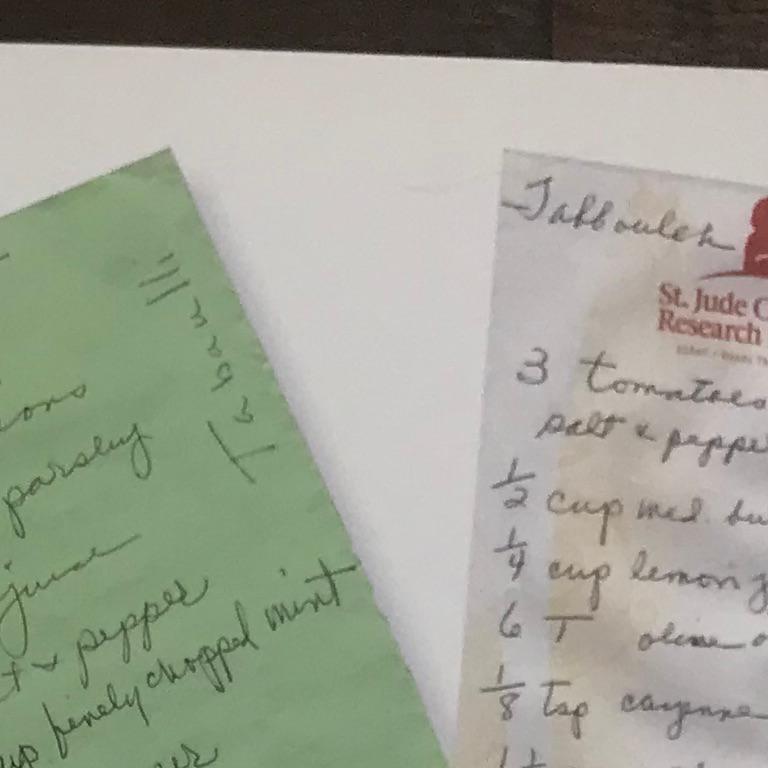 ions
parsley
juice
t & pepper
up finely chopped mint
Tabbouleh
St. Jude C
Research
3 tomatoes
salt & peppe
1/2 cup med. bu
1/4 cup lemon j
6 T olive o
1/8 tsp cayenne